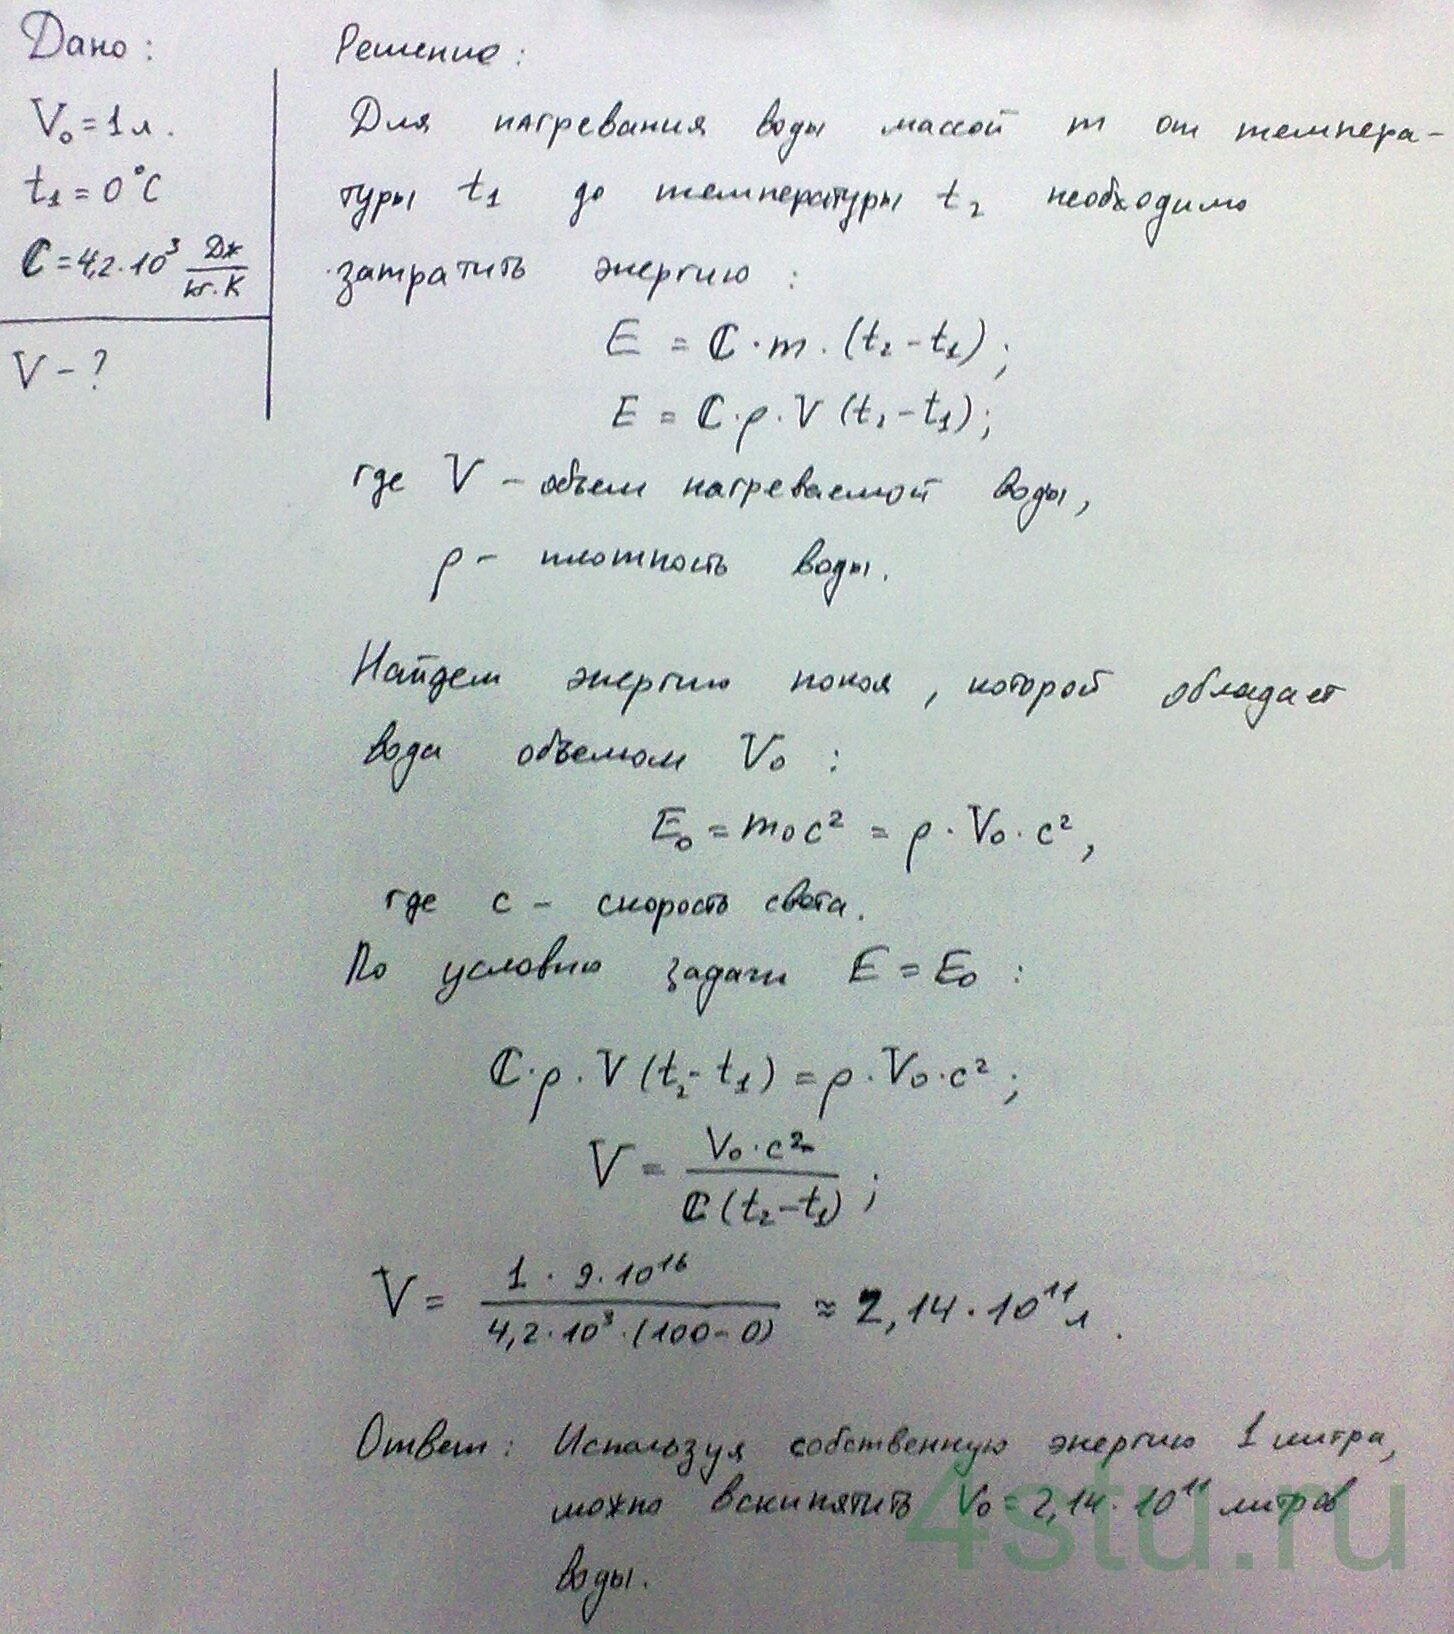 Дано:
V₀ = 1 л.
t₁ = 0 °C
C = 4,2·10³ Дж/кг·К
V – ?
Решение:
Для нагревания воды массой m от темпера-
туры t₁ до температуры t₂ необходимо
затратить энергию:
E = C · m · (t₂ – t₁);
E = C · ρ · V (t₂ – t₁);
где V – объем нагреваемой воды,
ρ – плотность воды.
Найдем энергию покоя, которой обладает
вода объемом V₀ :
E₀ = m₀c² = ρ · V₀ · c²,
где c – скорость света.
По условию задачи E = E₀ :
C · ρ · V (t₂ – t₁) = ρ · V₀ · c² ;
V = V₀ · c² / C (t₂ – t₁) ;
V = 1 · 9 · 10¹⁶ / 4,2 · 10³ · (100 – 0) ≈ 2,14 · 10¹¹ л.
Ответ: Используя собственную энергию 1 литра,
можно вскипятить V₀ = 2,14 · 10¹¹ литров
воды.
4stu.ru